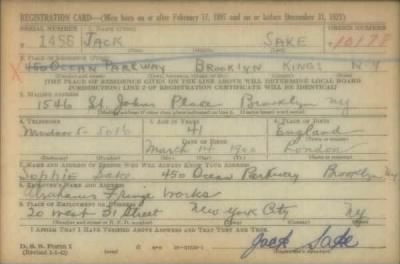 REGISTRATION CARD—(Men born on or after February 17, 1897 and on or before December 31, 1921)
SERIAL NUMBER 1. NAME (Print) ORDER NUMBER
1456 JACK SAKE 10178
(First) (Middle) (Last)
2. PLACE OF RESIDENCE (Print)
X 450 OCEAN PARKWAY BROOKLYN KINGS N-Y
(Number and street) (Town, township, village, or city) (County) (State)
[THE PLACE OF RESIDENCE GIVEN ON THE LINE ABOVE WILL DETERMINE LOCAL BOARD
JURISDICTION; LINE 2 OF REGISTRATION CERTIFICATE WILL BE IDENTICAL]
3. MAILING ADDRESS
1546 St. Johns Place Brooklyn NY
4. TELEPHONE 5. AGE IN YEARS 6. PLACE OF BIRTH
5016 41 England
DATE OF BIRTH
March 14 1900 London
7. NAME AND ADDRESS OF PERSON WHO WILL ALWAYS KNOW YOUR ADDRESS
Sophie Sake 450 Ocean Parkway Brooklyn NY
8. EMPLOYER'S NAME AND ADDRESS
Abrahams Fringe Works
9. PLACE OF EMPLOYMENT OR BUSINESS
20 West 31 Street New York City NY
I AFFIRM THAT I HAVE VERIFIED ABOVE ANSWERS AND THAT THEY ARE TRUE.
D. S. S. Form 1
(Revised 1-1-42) Jack Sake